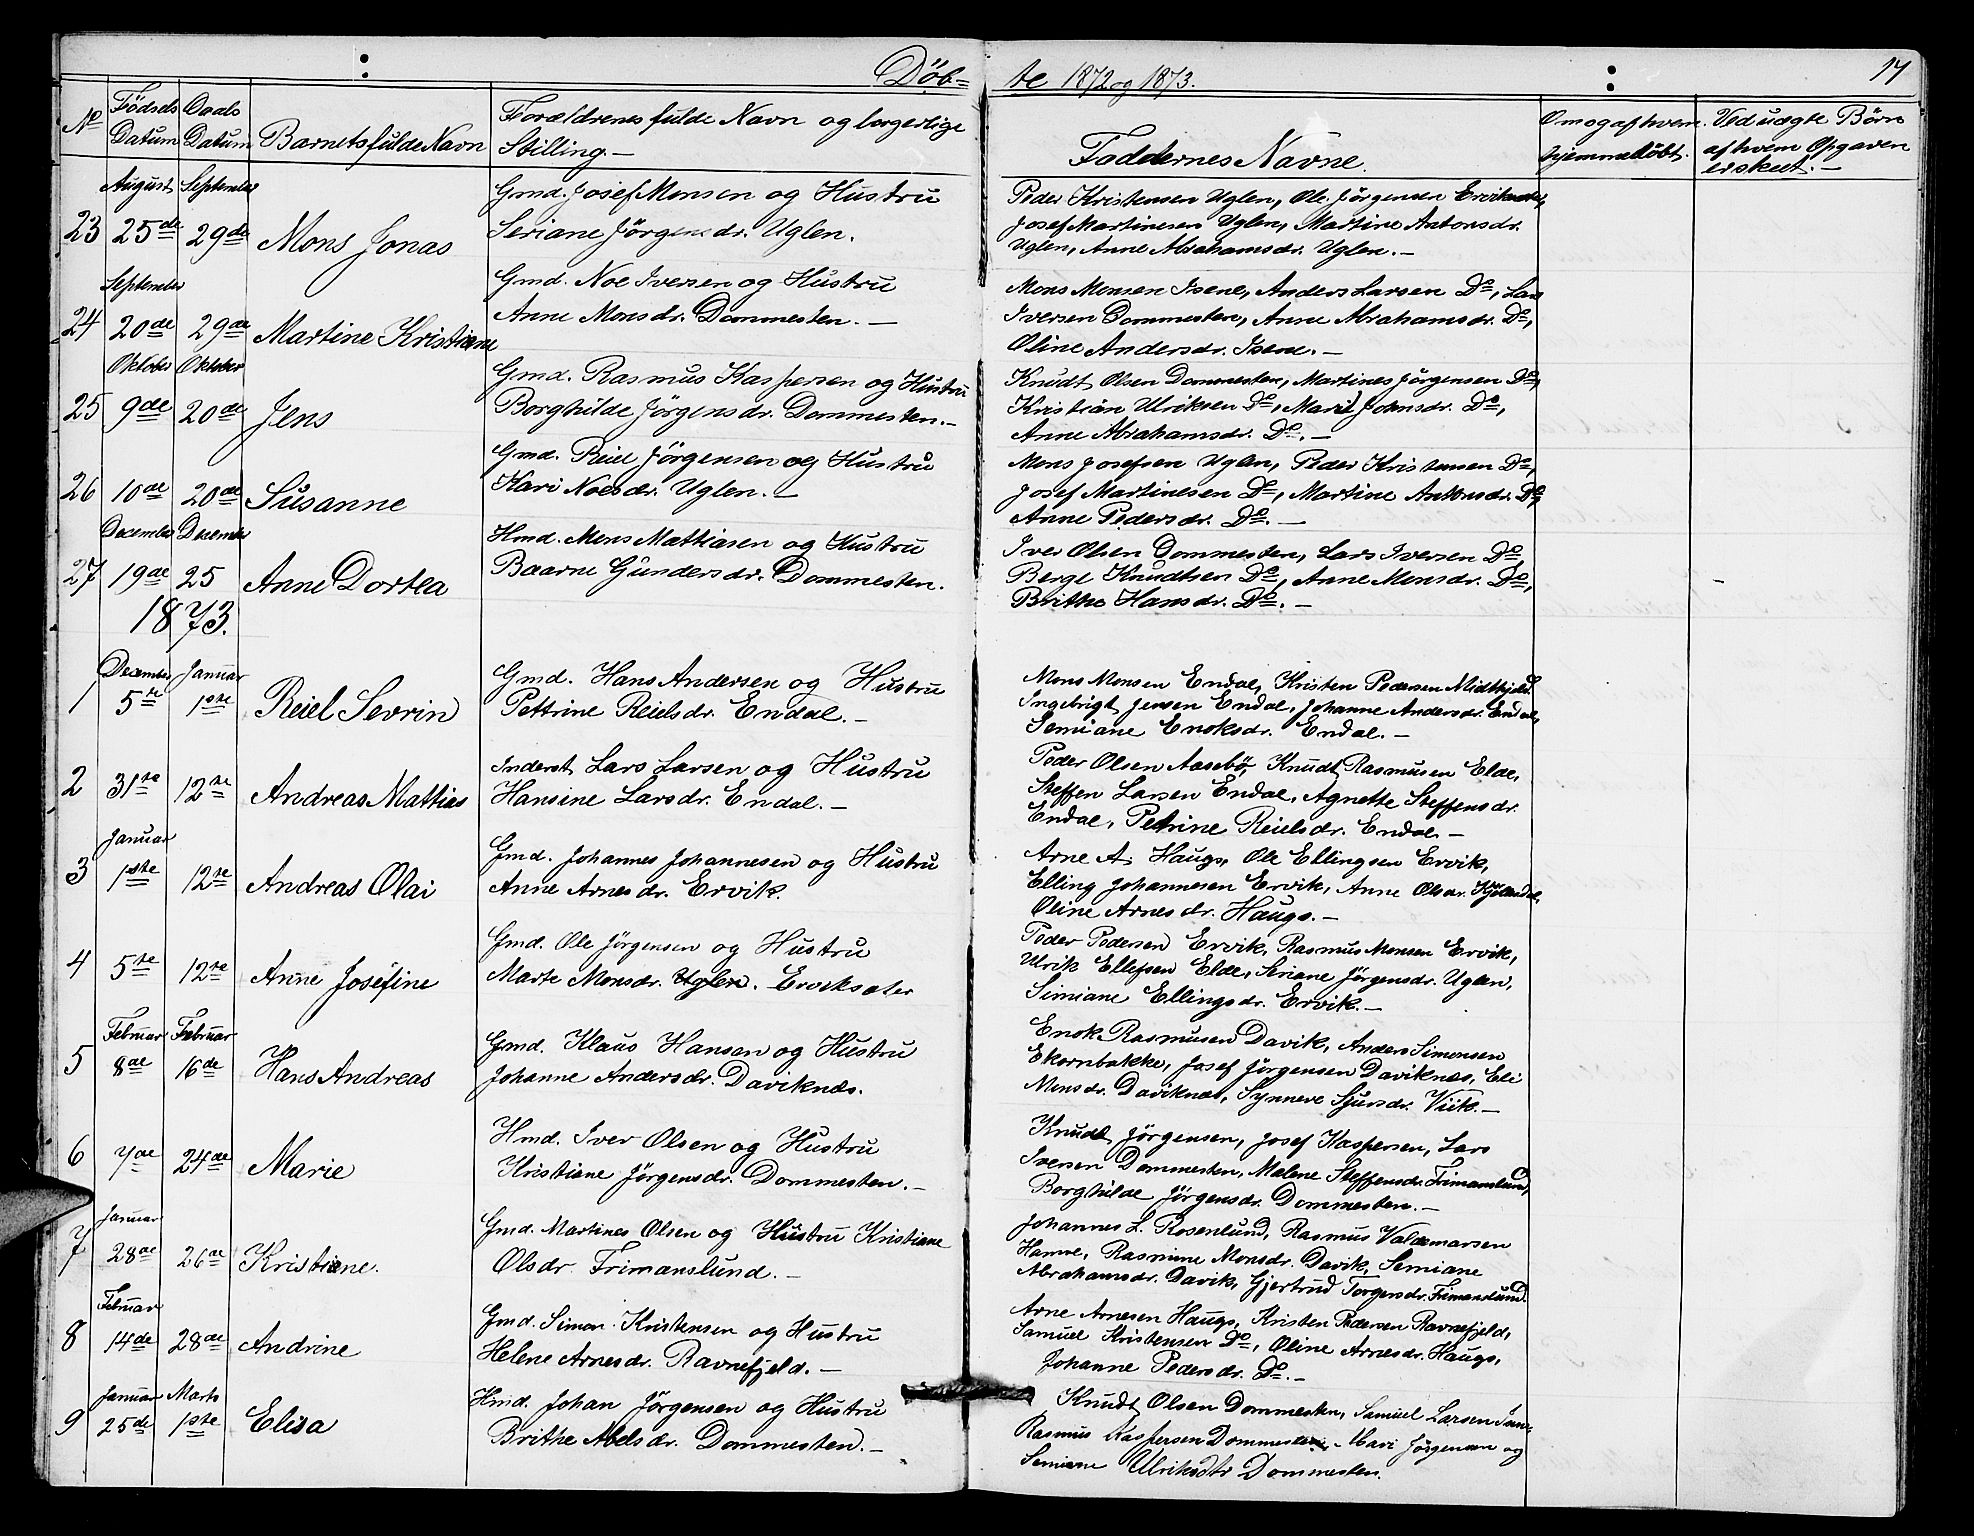 Döb= te 1872 og 1873. 14
No Födsels Datum Daabs Datum Barnets fulde Navn Forældrenes fulde Navn og borgerlige Stilling.— Faddernes Navne. Om og af hvem hjemmedöbt. Ved uægte Börn af hvem Opgaven er skeet.—
August September Gmd. Josef Monsen og Hustru Peder Kristensen Uglen, Ole Jörgensen
23 25de 29de Mons Jonas Seriane Jörgensdr. Uglen. Josef Martinesen Uglen, Martine Antonsdr.
Uglen, Anne Abrahamsdr. Uglen.—
September Gmd. Noe Iversen og Hustru Mons Monsen Isene, Anders Larsen Do, Lars
24 20de 29de Martine Kristiane Anne Monsdr. Dommesten.— Iversen Dommesten, Anne Abrahamsdr. Do,
Oline Andersdr. Isene.—
Oktober Oktober Gmd. Rasmus Kaspersen og Hustru Knudt Olsen Dommesten, Martines Jörgensen Do,
25 9de 20de Jens Borghilde Jörgensdr. Dommesten.— Kristian Ulriksen Do, Marit Johnsdr. Do,
Anne Abrahamsdr. Do.—
Gmd. Reiel Jörgensen og Hustru Mons Josefsen Uglen, Peder Kristensen Do,
26 10de 20de Susanne Kari Noesdr. Uglen.— Josef Martinesen Do, Martine Antonsdr. Do,
Anne Pedersdr. Do.—
December December Hmd. Mons Mattiasen og Hustru Iver Olsen Dommesten, Lars Iversen Do,
27 19de 25 Anne Dortea Baarne Gundersdr. Dommesten. Berge Knudtsen Do, Anne Monsdr. Do,
1873. Brithe Hansdr. Do.—
December Januar Gmd. Hans Andersen og Hustru Mons Monsen Endal, Kristen Pedersen
1 5te 1ste Reiel Sevrin Pettrine Reielsdr. Endal.— Ingebrigt Jensen Endal, Johanne Andersdr. Endal,
Semiane Enoksdr. Endal.—
Inderst Lars Larsen og Hustru Peder Olsen Aasebö, Knudt Rasmusen Elde,
2 31te 12te Andreas Mattias Hansine Larsdr. Endal.— Steffen Larsen Endal, Agnette Steffensdr.
Endal, Petrine Reielsdr. Endal.—
Januar Gmd. Johannes Johannesen og Hustru Arne A. Hauge, Ole Ellingsen Ervik,
3 1ste 12te Andreas Olai Anne Arnesdr. Ervik. Elling Johannesen Ervik, Anne Olsdr.
Oline Arnesdr. Hauge.—
Gmd. Ole Jörgensen og Hustru Peder Pedersen Ervik, Rasmus Monsen Ervik,
4 5te 12te Anne Joséfine Marte Monsdr. Uglen. Erviksæter Ulrik Ellefsen Elde, Seriane Jörgensdr. Uglen,
Simiane Ellingsdr. Ervik.—
Februar Februar Gmd. Klaus Hansen og Hustru Enok Rasmusen Davik, Anders Simonsen
5 8de 16de Hans Andreas Johanne Andersdr. Daviknæs. Ekornbakke, Josef Jörgensen Daviknæs, Eli
Monsdr. Daviknæs, Synneve Sjursdr. Viik.—
Hmd. Iver Olsen og Hustru Knudt Jörgensen, Josef Kaspersen, Lars
6 7de 24de Marie Kristiane Jörgensdr. Dommesten.— Iversen Dommesten, Malene Steffensdr. Frimanslund,
Borghilde Jörgensdr. Dommesten.—
Januar Gmd. Martines Olsen og Hustru Kristiane Johannes L. Rosenlund, Rasmus Valdemarsen
7 28de 26de Kristiane. Olsdr Frimanslund.— Hamne, Rasmine Monsdr. Davik, Semiane
Abrahamsdr. Davik, Gjertrud Torgersdr. Frimanslund.
Februar Gmd. Simon Kristensen og Hustru Arne Arnesen Hauge, Kristen Pedersen Ravnefjeld,
8 14de 28de Andrine Helene Arnesdr. Ravnefjeld.— Samuel Kristensen Do, Oline Arnesdr. Hauge,
Johanne Pedersdr. Do.—
Januar Marts Hmd. Johan Jörgensen og Hustru Knudt Olsen Dommesten, Samuel Larsen
9 25de 1ste Elisa Brithe Abelsdr. Dommesten.— Rasmus Kaspersen Dommesten, Kari Jörgensen og
Semiane Ulriksdtr Dommesten.